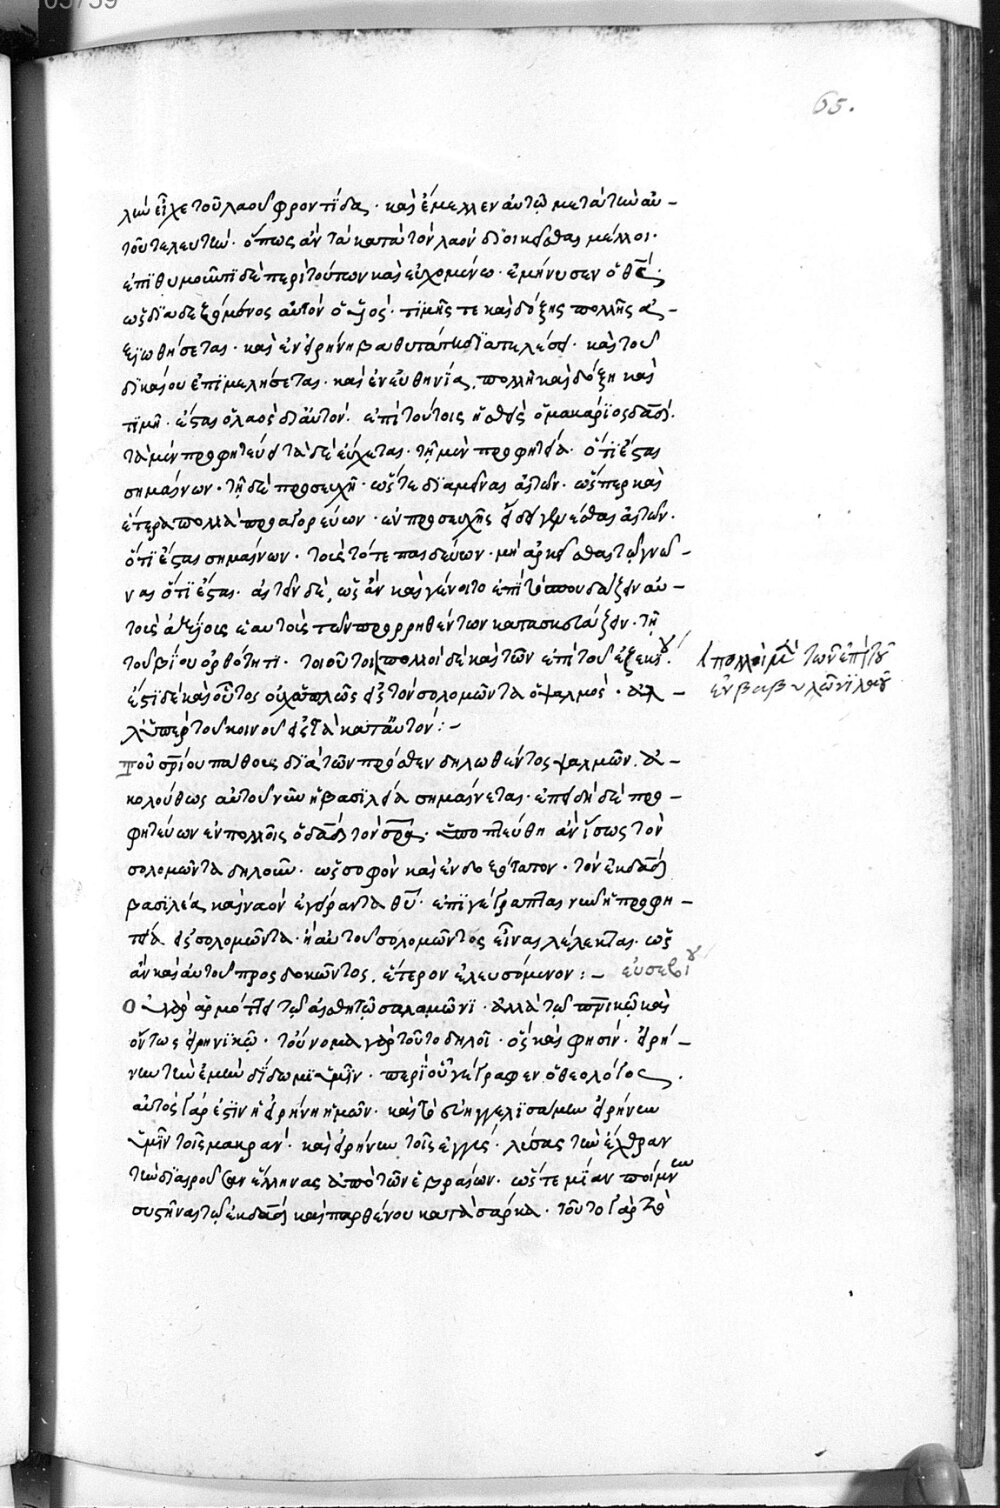 65.
λὴν εἶχε τοῦ λαοῦ φροντίδα· καὶ ἔμελλεν αὐτῷ μετὰ τὴν αὐ-
τοῦ τελευτὴν· ὅπως ἂν τὰ κατὰ τὸν λαὸν διοικεῖσθαι μέλλοι·
ἐπιθυμοῦντι δὲ περὶ τούτων καὶ εὐχομένω· ἐμήνυσεν ὁ θς·
ὡς διαδεξόμενος αὐτὸν ὁ υἱός· τιμῆς τε καὶ δόξης πολλῆς ἀ-
ξιωθήσεται· καὶ ἐν εἰρήνη βαθυτάτη διατελέσει· καὶ τοῦ
δικαίου ἐπιμελήσεται· καὶ ἐν εὐθηνία, πολλῆ καὶ δόξη καὶ
τιμῆ· ἔσται ὁ λαὸς δι αὐτόν· ἐπὶ τούτοις ἡσθεὶς ὁ μακάριος δαδ·
τὰ μὲν προφητεύει τὰ δὲ εὔχεται· τῇ μὲν προφητεία· ὅτι ἔσται
σημαίνων· τῇ δὲ προσευχῇ· ὥστε διαμεῖναι αἰτῶν· ὥσπερ καὶ
ἕτερα πολλὰ προαγορεύων· ἐν προσευχῆς εἴδει γενέσθαι αἰτῶν·
ὅτι ἔσται σημαίνων· τοὺς τότε παιδεύων· μὴ ἀρκεῖσθαι τῷ γνῶ-
ναι ὅτι ἔσται· αἰτεῖν δὲ, ὡς ἂν καὶ γένοιτο ἐπὶ τὸ σπουδάζειν αὐ-
τοὺς ἀξίους ἑαυτοὺς τῶν προρρηθέντων κατασκευάζειν· τῇ
τοῦ βίου ὀρθότητι· τοιοῦτοι πολλοὶ δὲ καὶ τῶν ἐπὶ τοῦ ἐζεκίου·
πολλοὶ μὲν τῶν ἐπὶ τοῦ
ἐν βαβυλῶνι λαοῦ
ἔστι δὲ καὶ οὗτος οὐχ ἁπλῶς εἰς τὸν σολομῶντα ὁ ψαλμὸς· ἀλ-
λ' ὑπὲρ τοῦ κοινοῦ εἰς τὰ κατ αὐτόν:-
Τοῦ σρίου πάθους διὰ τῶν πρόσθεν δηλωθέντος ψαλμῶν. ἀ-
κολούθως αὐτοῦ νῦν ἡ βασιλεία σημαίνεται· ἐπειδὴ δὲ προ-
φητεύων ἐν πολλοῖς ὁ δαδ τὸν σρα· ὑποπτεύθη ἂν ἴσως τὸν
σολομῶντα δηλοῦν· ὡς σοφὸν καὶ ἐνδοξότατον· τὸν ἐκ δαδ
βασιλέα καὶ ναὸν ἐγείραντα θυ· ἐπιγέγραπται νῦν ἡ προφη-
τεία εἰς σολομῶντα· ἢ αὐτοῦ σολομῶντος εἶναι λέλεκται· ὡς
ἂν καὶ αὐτοῦ προσδοκῶντος, ἕτερον ἐλευσόμενον:- εὐσεβίου
Οὐ γὰρ ἁρμόττει τῷ αἰσθητῷ σαλαμῶνι· ἀλλὰ τῷ πνικῷ καὶ
ὄντως εἰρηνικῷ· τοὔνομα γὰρ τοῦτο δηλοῖ· ὃς καὶ φησὶν· εἰρή-
νην τὴν ἐμὴν δίδωμι ὑμῖν· περὶ οὗ γέγραφεν ὁ θεολόγος·
αὐτὸς γάρ ἐστιν ἡ εἰρήνη ἡμῶν· καὶ τὸ εὐηγγελισάμην εἰρήνην
ὑμῖν τοῖς μακρὰν· καὶ εἰρήνην τοῖς ἐγγὺς· λύσας τὴν ἔχθραν
τὴν διαιροῦσαν ἕλληνας ἀπὸ τῶν ἑβραίων· ὥστε μίαν ποίμνην
συστῆναι τῷ ἐκ δαδ καὶ παρθένου κατὰ σάρκα· τοῦτο γὰρ τὸ